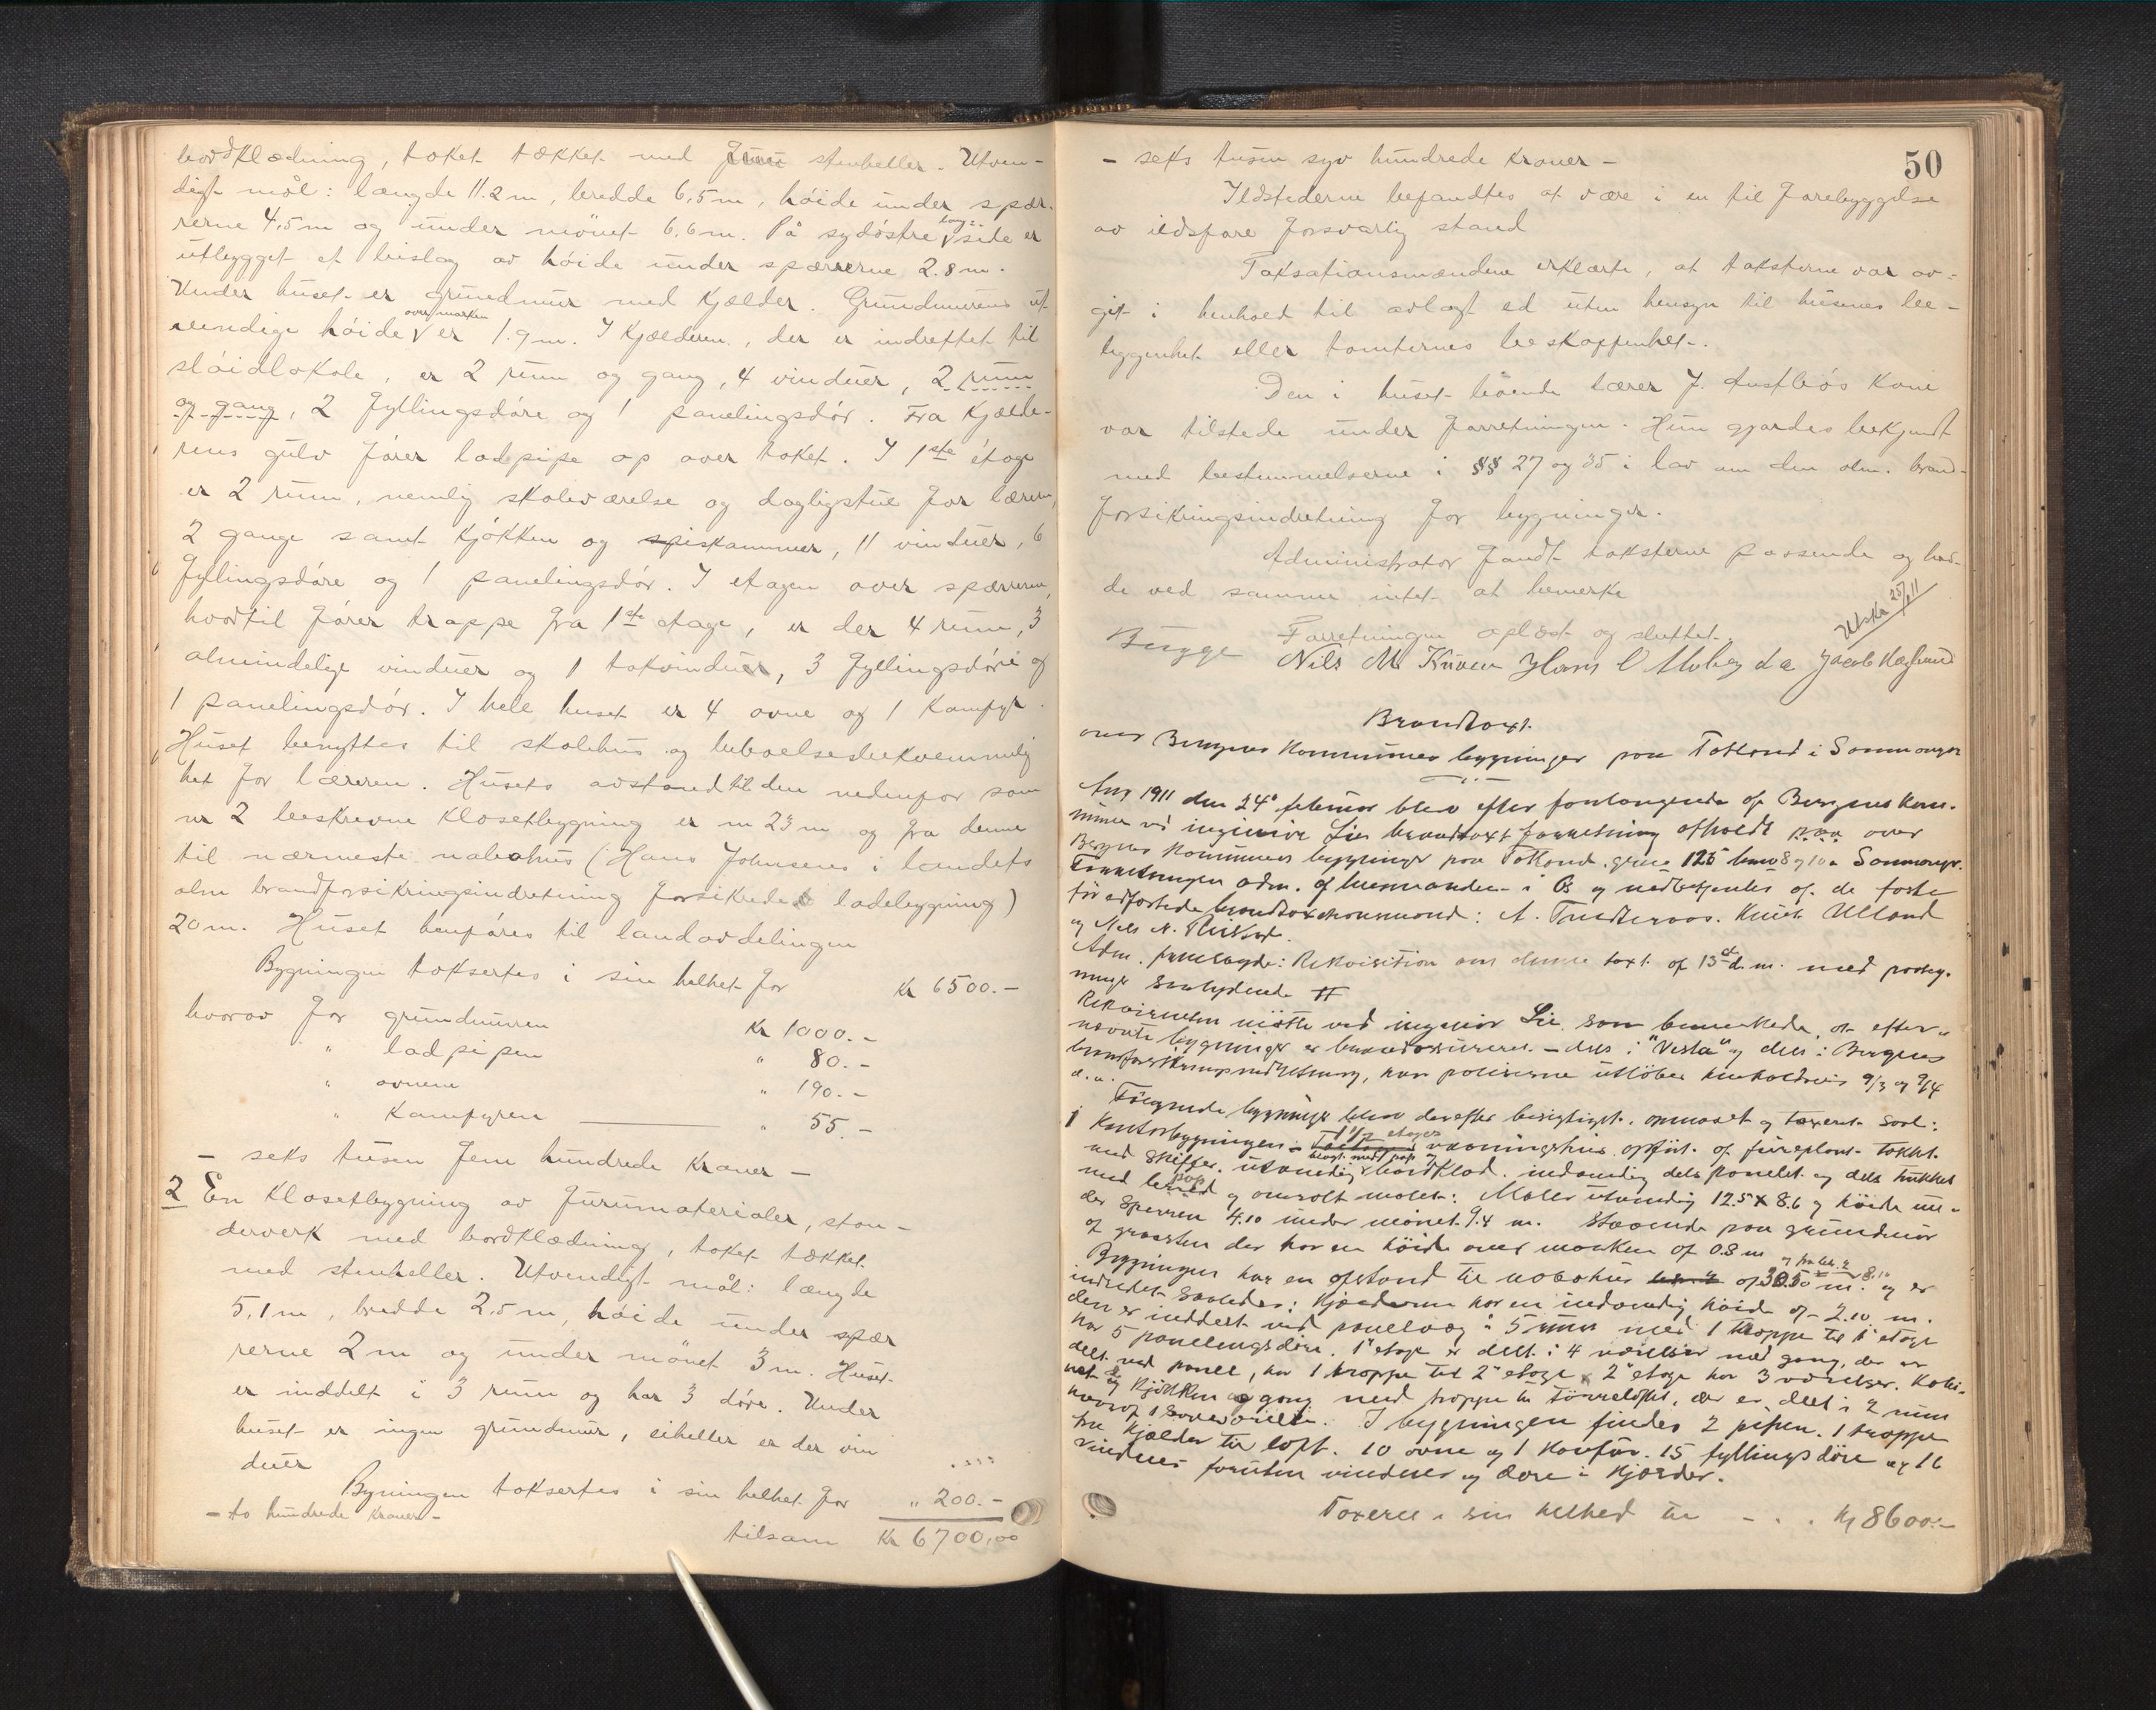 bordklædning, taket tækket med stenheller. Utven-
digt mål: længde 11.2 m, bredde 6,5 m, høide under spær-
rerne 4,5 m og under mønet 6,6 m. På sydøstre lang- side er
utbygget et bislag av høide under spærrerne 2.8 m.
Under huset er grundmur med kjælder. Grundmurens ut-
vendige høide over marken er 1.9 m. I kjælderen, der er indrettet til
sløidlokale, er 2 rum og gang, 4 vinduer, 2 rum
og gang, 2 fyllingsdøre og 1 panelingsdør. Fra kjælde-
rens gulv fører ladpipe op over taket. I 1ste etage
er 2 rum, nemlig skoleværelse og dagligstue for læreren,
2 gange samt kjøkken og spiskammer, 11 vinduer, 6
fyllingsdøre og 1 panelingsdør. I etagen over spærrerne,
hvortil fører trappe fra 1ste etage, er der 4 rum, 3
almindelige vinduer og 1 takvindue, 3 fyllingsdøre og
1 panelingsdør. I hele huset er 4 ovne og 1 kamfyr.
Huset benyttes til skolehus og beboelsesbekvemmelig
het for læreren. Husets avstand til den nedenfor som
nr 2 beskrevne klosetbygning er 23 m og fra denne
til nærmeste nabohus (Hans Johnsens i landets
alm brandforsikringsindretning forsikrede ladebygning)
20 m. Huset henføres til landavdelingen
Bygningen taksertes i sin helhet for Kr 6500.-
hvorav for grundmuren Kr 1000.-
" ladpipen " 80.-
" ovnene " 190.-
" kamfyren " 55.-
- seks tusen fem hundrede kroner -
2 En klosetbygning av furumaterialer, stan-
derverk med bordklædning, taket tækket
med stenheller. Utvendigt mål: længde
5,1 m, bredde 2,5 m, høide under spær
rerne 2 m og under mønet 3 m. Huset
er inddelt i 3 rum og har 3 døre. Under
huset er ingen grundmur, eiheller er der vin
duer
Bygningen taksertes i sin helhet for " 200.-
- to hundrede kroner -
tilsam Kr 6700,00
50
- seks tusen syv hundrede kroner -
Ildstederne befandtes at være i en til forebyggelse
av ildsfare forsvarlig stand
Taksationsmændene erklærte, at taksterne var av-
git i henhold til avlagt ed uten hensyn til husenes be-
liggenhet eller tomternes beskaffenhet.
Den i huset boende lærer J. kone
var tilstede under forretningen. Hun gjordes bekjendt
med bestemmelserne i §§ 27 og 35 i lov om den alm. brand-
forsikringsindretning for bygninger.
Administrator fandt taksterne passende og had-
de ved samme intet at bemerke
Forretningen oplæst og sluttet.
Utskr 25/ 11
Bugge Nils M Hans O Jacob
Brandtaxt.
over Bergens kommunes bygninger paa Totland i Samnanger
Aar 1911 den 24de februar blev efter forlangende af Bergens kom-
mune ved ingeniør Lie brandtaxt forretning afholdt paa over
Bergens kommunes bygninger paa Totland gnr. 125 bnr 8 og 10 i Samnanger.
Forretningen adm. af lensmanden i Os og medbetjentes af de faste
før edfæstede brandtaxtmænd: A. Knut Ulland
og Nils N.
Adm. fremlagde: Rekvisition om denne taxt af 13de d.m. med paateg-
ninger saalydende
Rekvirenten møtte ved ingeniør Lie, som bemerkede, at efter-
nævnte bygninger er brandassureret - dels i "Vesta" og dels i Bergens
brandforsikringsindretning, hvor poliserne utløber henholdsvis 9/3 og 9/4
d. a.
Følgende bygninger blev derefter besigtiget, opmaalt og taxeret saal:
1 Kontorbygningen. 1 1/2 etages vaaningshus opført af furuplank. Tækket
med skiffer, utvendig belagt med pap og bordklæd. indvendig dels panelet og dels trukket
med pap og overalt malet: Maaler utvendig 12.5 x 8.6 og høide un-
der sperren 4.10 under mønet 9.4 m. Staaende paa grundmur
af graasten der har en høide over marken af 0.8 m
Bygningen har en afstand til nabohus af 30.50 m. og fra bek. 2 8.10 og er
indredet saaledes: Kjælderen har en indvendig høide af 2.10 m.
den er inddelt ved panelvæg i 5 rum med 1 trappe til 1ste etage
har 5 panelingsdøre. 1ste etage er delt i 4 værelser med gang, der er
delt ved panel, har 1 trappe til 2den etage. 2den etage har 3 værelser. Kabi-
net og kjøkken og gang med trappe til tørreloftet, der er delt i 2 rum
hvoraf 1 soveværelse. I bygningen findes 2 piper. 1 trappe
fra kjælder til loft. 10 ovne og 1 komfur. 15 fyllingsdøre og 16
vinduer foruten vinduer og døre i kjælder.
Taxeret i sin helhed til - . . Kr 8600.-